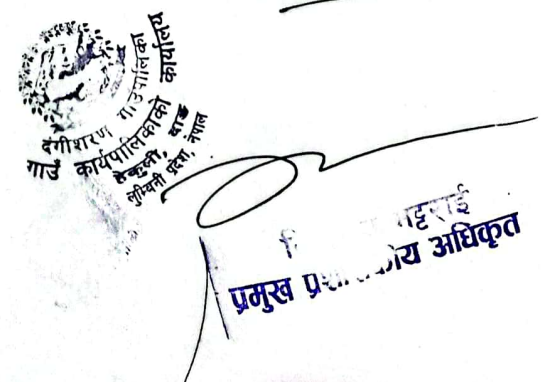 दंगीशरण गाउँपालिका
गाउँ कार्यपालिकाको कार्यालय
हेकुली, दाङ
लुम्बिनी प्रदेश, नेपाल
भट्टराई
प्रमुख प्रशासकीय अधिकृत